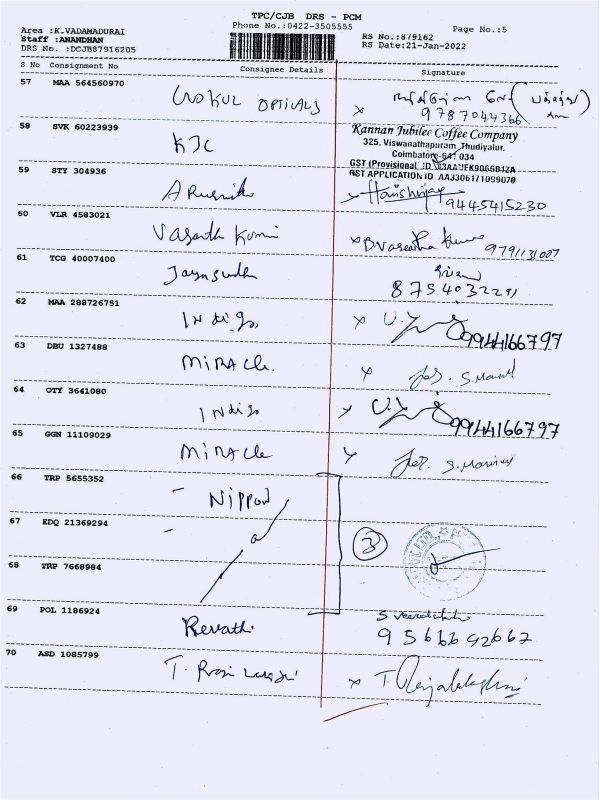 TPC/CJB DRS - PCM
Phone No.:0422-3505555
Page No.:5
Area :K.VADAMADURAI
Staff :ANANDHAN
DRS No. :DCJB87916205
RS No.:879162
RS Date:21-Jan-2022
S No Consignment No Consignee Details Signature
57 MAA 564560970 GOKUL OPTICALS x
9787044366
58 SVK 60223939 KJC
Kannan Jubilee Coffee Company
325, Viswanathapuram, Thudiyalur,
Coimbatore-641 034
GST (Provisional ID
GST APPLICATION ID AA3306171099070
59 STY 304936 x 9445415230
60 VLR 4583021 Vasantha Kumar x B Vasantha Kumar
61 TCG 40007400 Jayasudha
62 MAA 288726751 INdigo x 9944166797
63 DBU 1327488 MiRACle. x for S.
64 OTY 3641080 INdigo x 9944166797
65 GGN 11109029 MiRACle x for S.
66 TRP 5655352 - NiPPON
67 EDQ 21369294 - 3
68 TRP 7668984
69 POL 1186924 Revathi
9566642667
70 ASD 1085799 T. x T